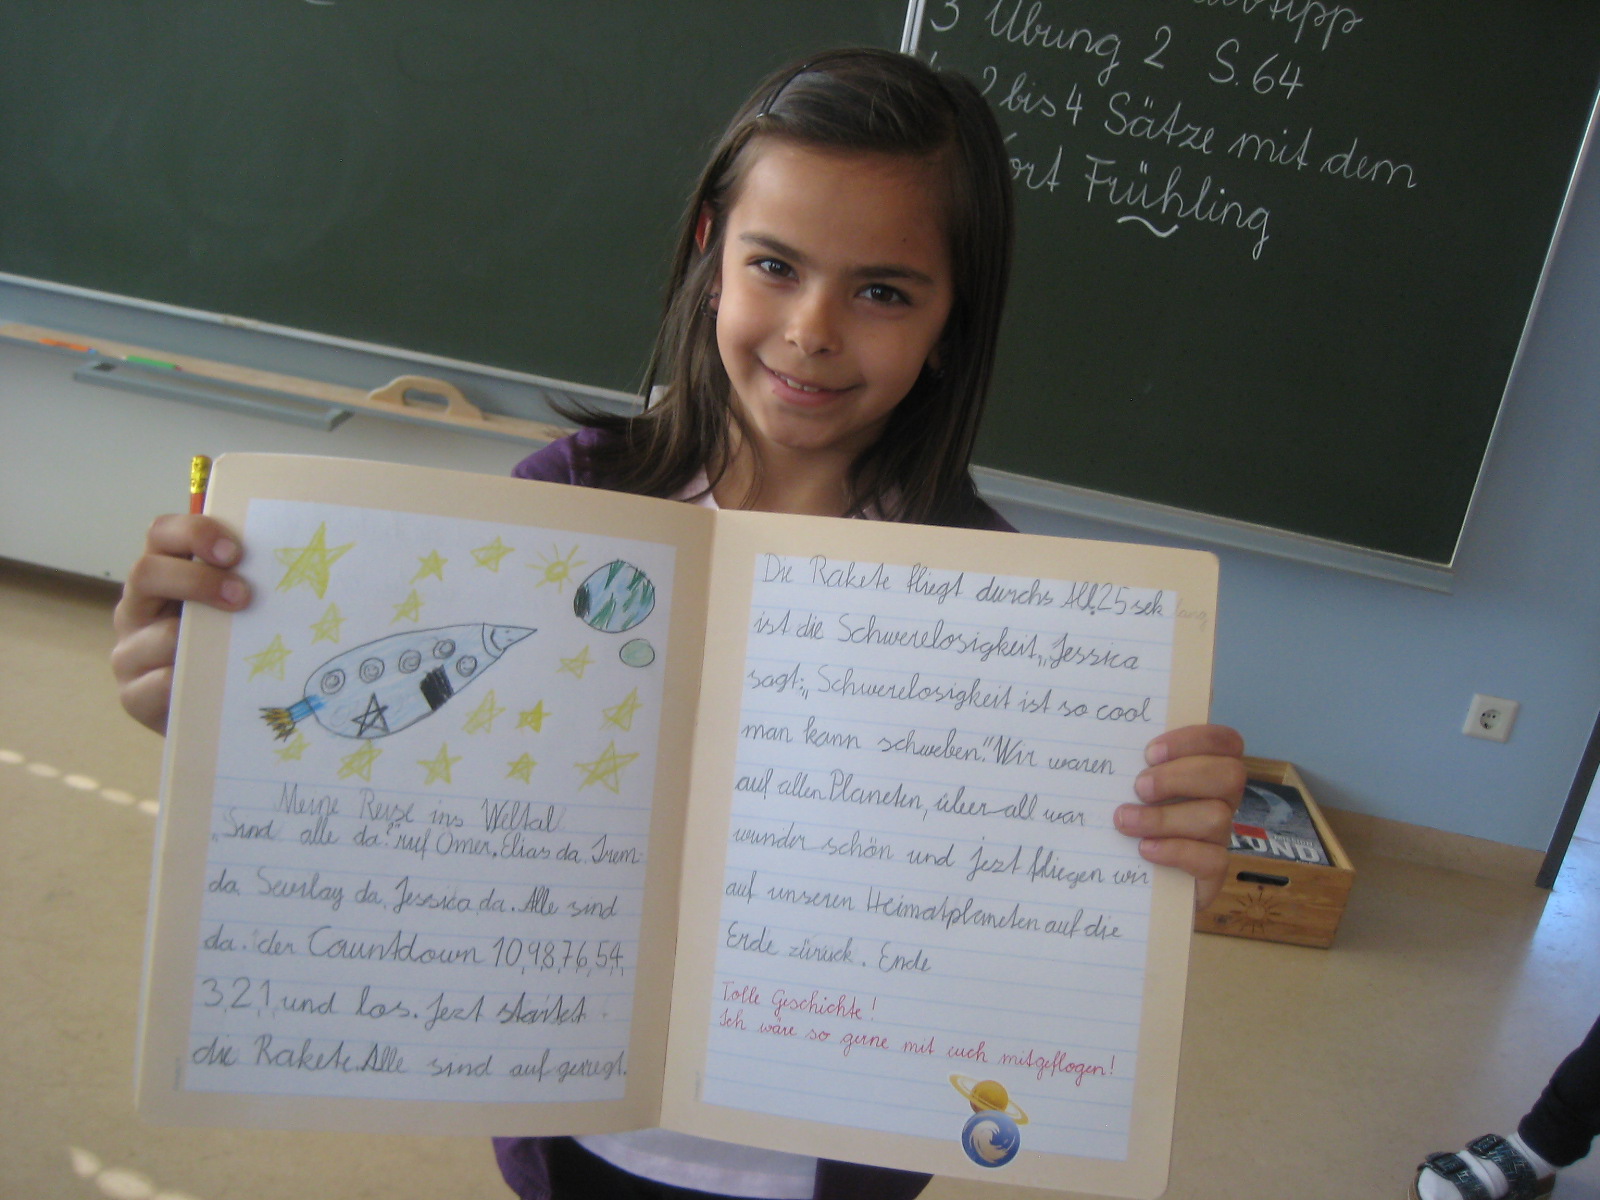 3 Übung 2 S. 64
2 bis 4 Sätze mit dem
ort Frühling
Meine Reise ins Weltal
„Sind alle da?" ruf Omer. Elias da, Irem
da, Sevilay da, Jessica da. Alle sind
da. der Countdown 10,9,8,7,6,5,4,
3,2,1, und los. Jezt startet
die Rakete. Alle sind auf geregt.
Die Rakete fliegt durchs All. 25 sek lang
ist die Schwerelosigkeit, Jessica
sagt: „Schwerelosigkeit ist so cool
man kann schweben." Wir waren
auf allen Planeten, über all war
wunder schön und jezt fliegen wir
auf unseren Heimatplaneten auf die
Erde zürück. Ende
Tolle Geschichte!
Ich wäre so gerne mit euch mitgeflogen!